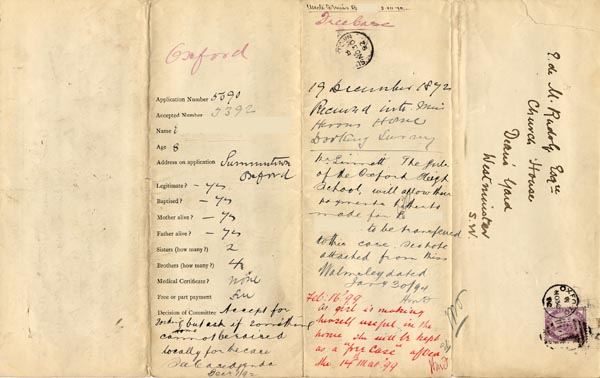 Oxford
Application Number 5390
Accepted Number 3392
Name
Age 8
Address on application Summertown
Oxford
Legitimate? - yes
Baptised? - yes
Mother alive? - yes
Father alive? - yes
Sisters (how many?) 2
Brothers (how many?) 4
Medical Certificate? None
Free or part payment Free
Decision of Committee Accept for
but ask if something
cannot be raised
locally for the case
See Case Agenda
Free Case
19 December 1892
Received into Miss
Herons Home
Dorking Surrey
The girls
of the Oxford High
School, will allow their
payments hitherto
made for B
to be transferred
to this case. See note
attached from Miss
Walmsley dated
Jan 30/94
Feb. 16 '99
As girl is making
herself useful in the
home she will be kept
as a "free case" after
the 14 Mar '99
E. de M. Rudolf Esqre
Church House
Deans Yard
Westminster
S.W.
OXFORD